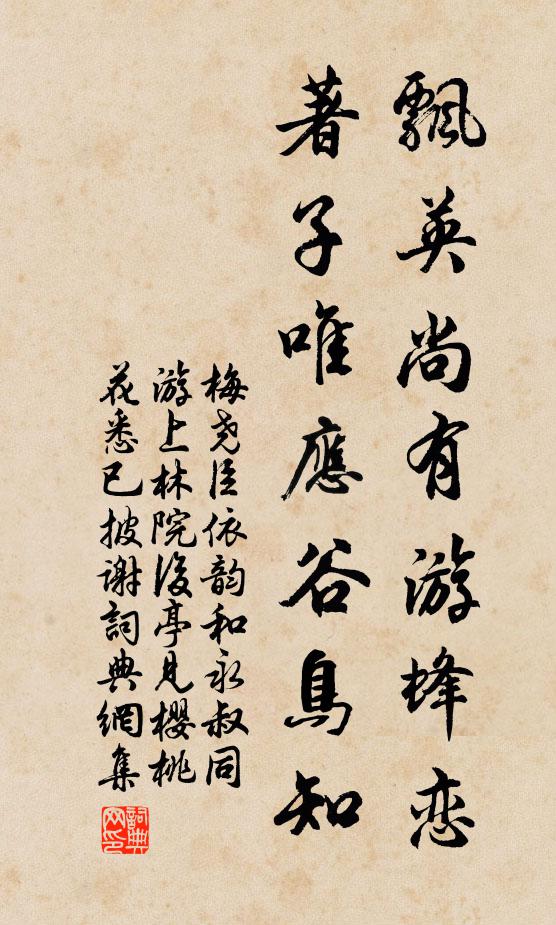 飄英尚有游蜂恋
著子唯應谷鳥知
梅尧臣依韵和永叔同
游上林院後亭見櫻桃
花悉已披謝詞典網集
詞典
网印